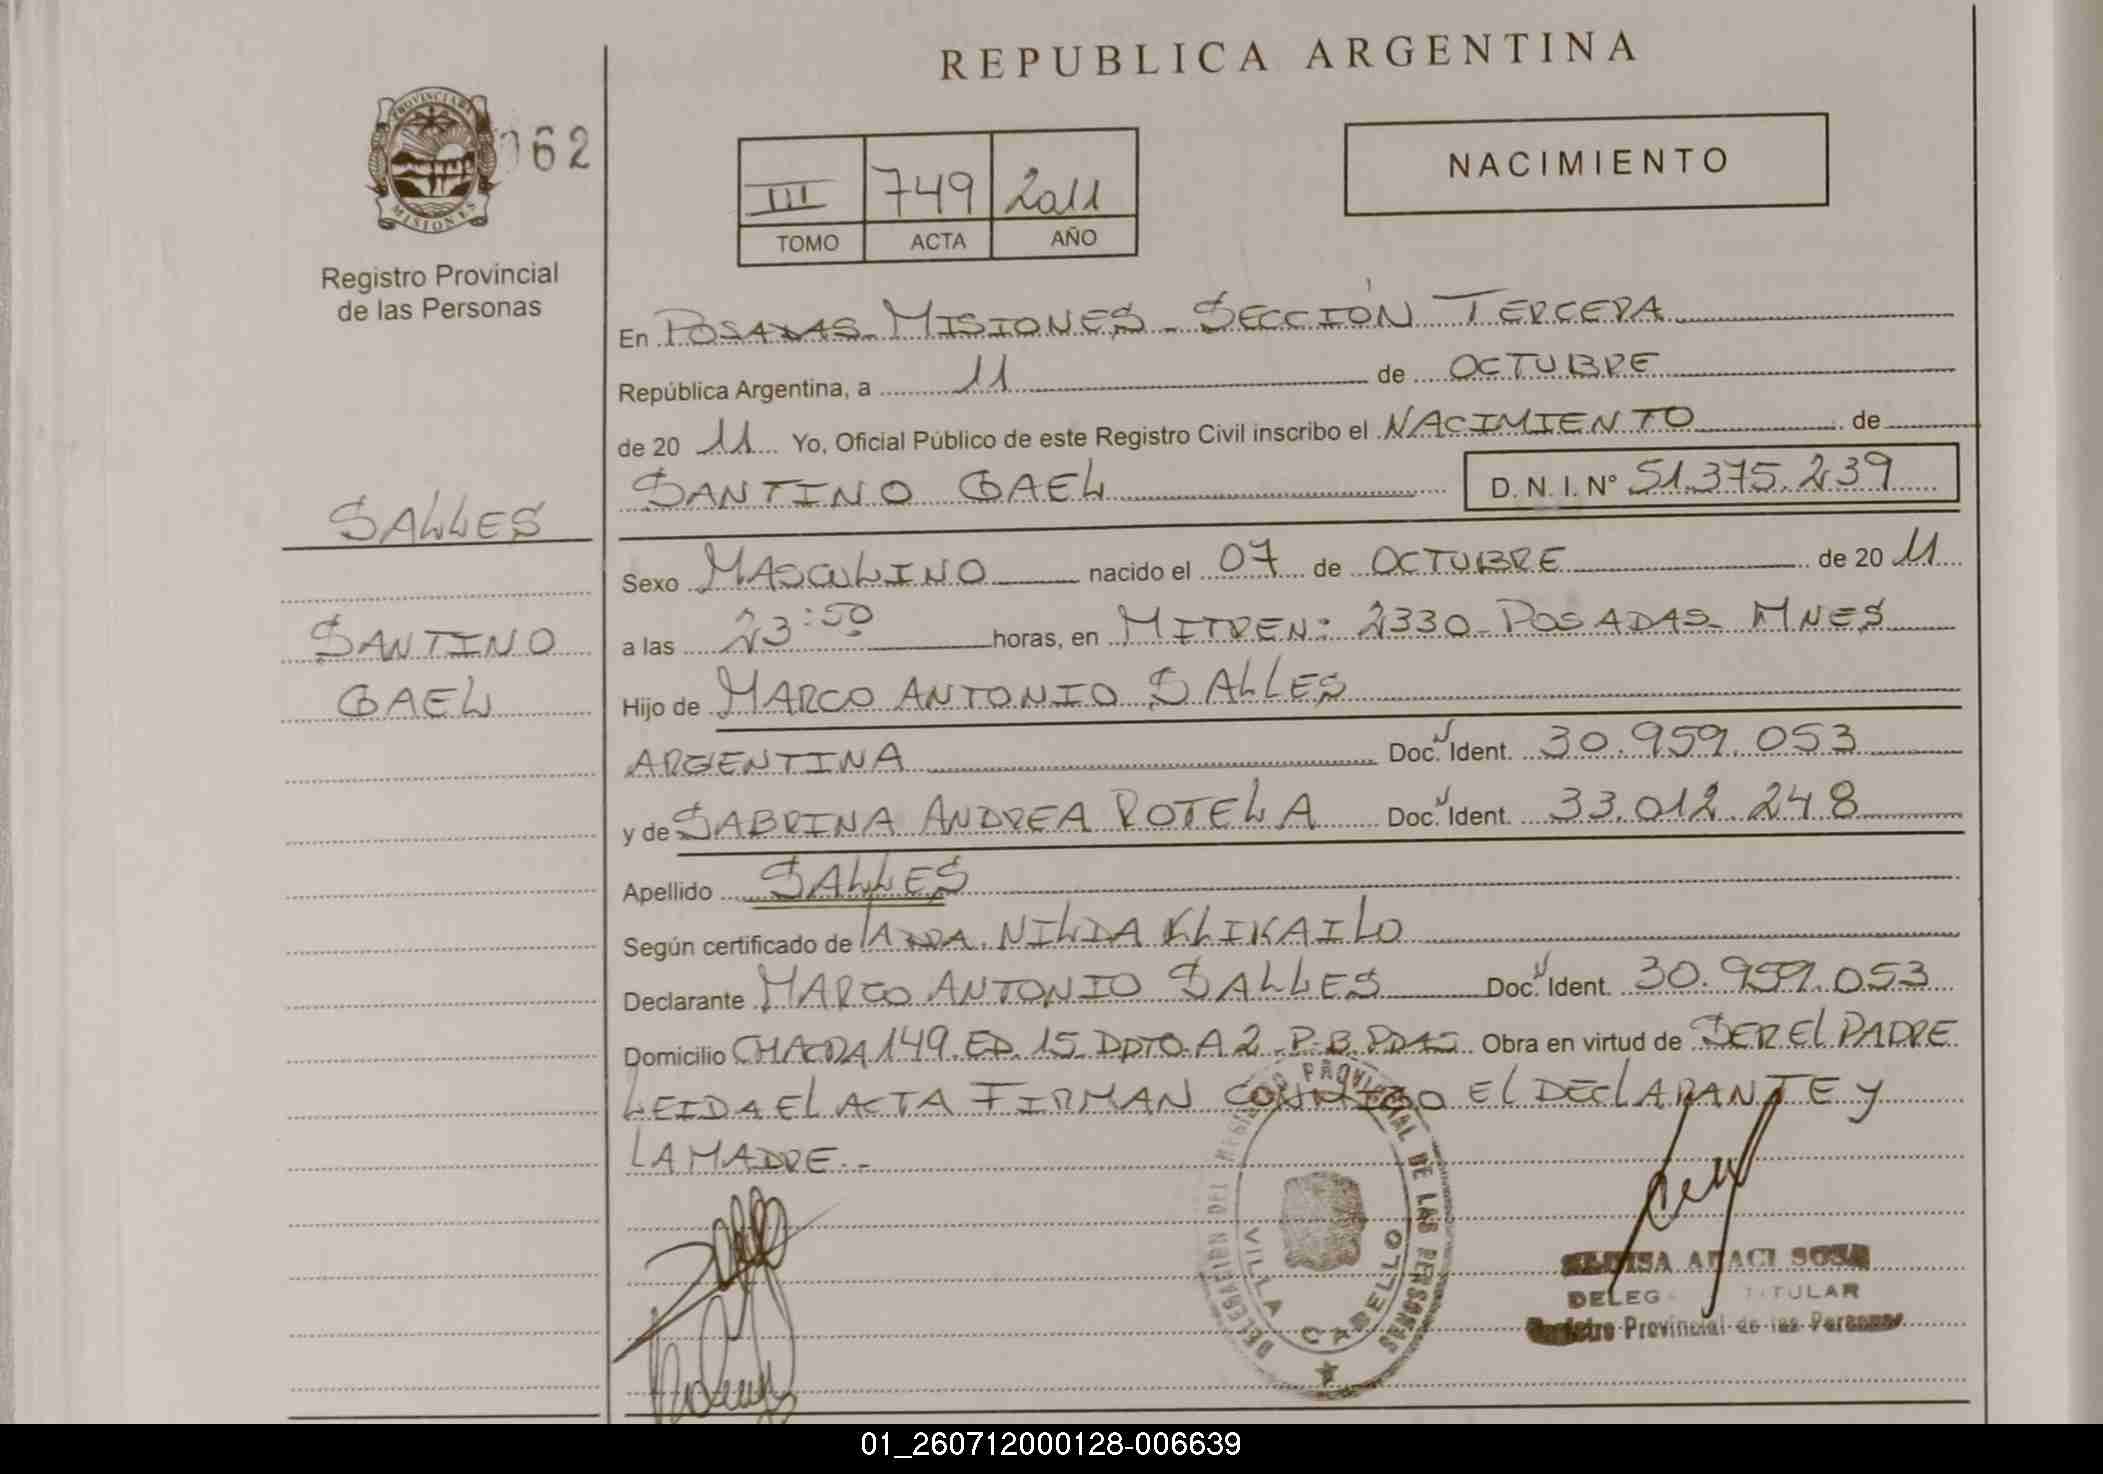 REPUBLICA ARGENTINA
PROVINCIA DE
MISIONES
062
III 749 2011
TOMO ACTA AÑO
NACIMIENTO
Registro Provincial
de las Personas
En POSADAS MISIONES - SECCIÓN TERCERA
República Argentina, a 11 de OCTUBRE
de 20 11 Yo, Oficial Público de este Registro Civil inscribo el NACIMIENTO de
SANTINO GAEL D. N. I. N° 51.375.239
SALLES
SANTINO
GAEL
Sexo MASCULINO nacido el 07 de OCTUBRE de 20 11
a las 23:50 horas, en MITREN: 2330 - POSADAS - MNES
Hijo de MARCO ANTONIO SALLES
ARGENTINA Doc. Ident. 30.959.053
y de SABRINA ANDREA ROTELA Doc. Ident. 33.012.248
Apellido SALLES
Según certificado de NILDA KLIKAILO
Declarante MARCO ANTONIO SALLES Doc. Ident. 30.959.053
Domicilio CHACRA 149. ED. 15. DPTO. A 2 - P-B. PDAS Obra en virtud de SER EL PADRE
LEIDA EL ACTA FIRMAN CONMIGO EL DECLARANTE Y
LA MADRE.-
DELEGACION DEL REGISTRO PROVINCIAL DE LAS PERSONAS
VILLA CABELLO
SOSA
TITULAR
Registro Provincial de las Personas
01_260712000128-006639